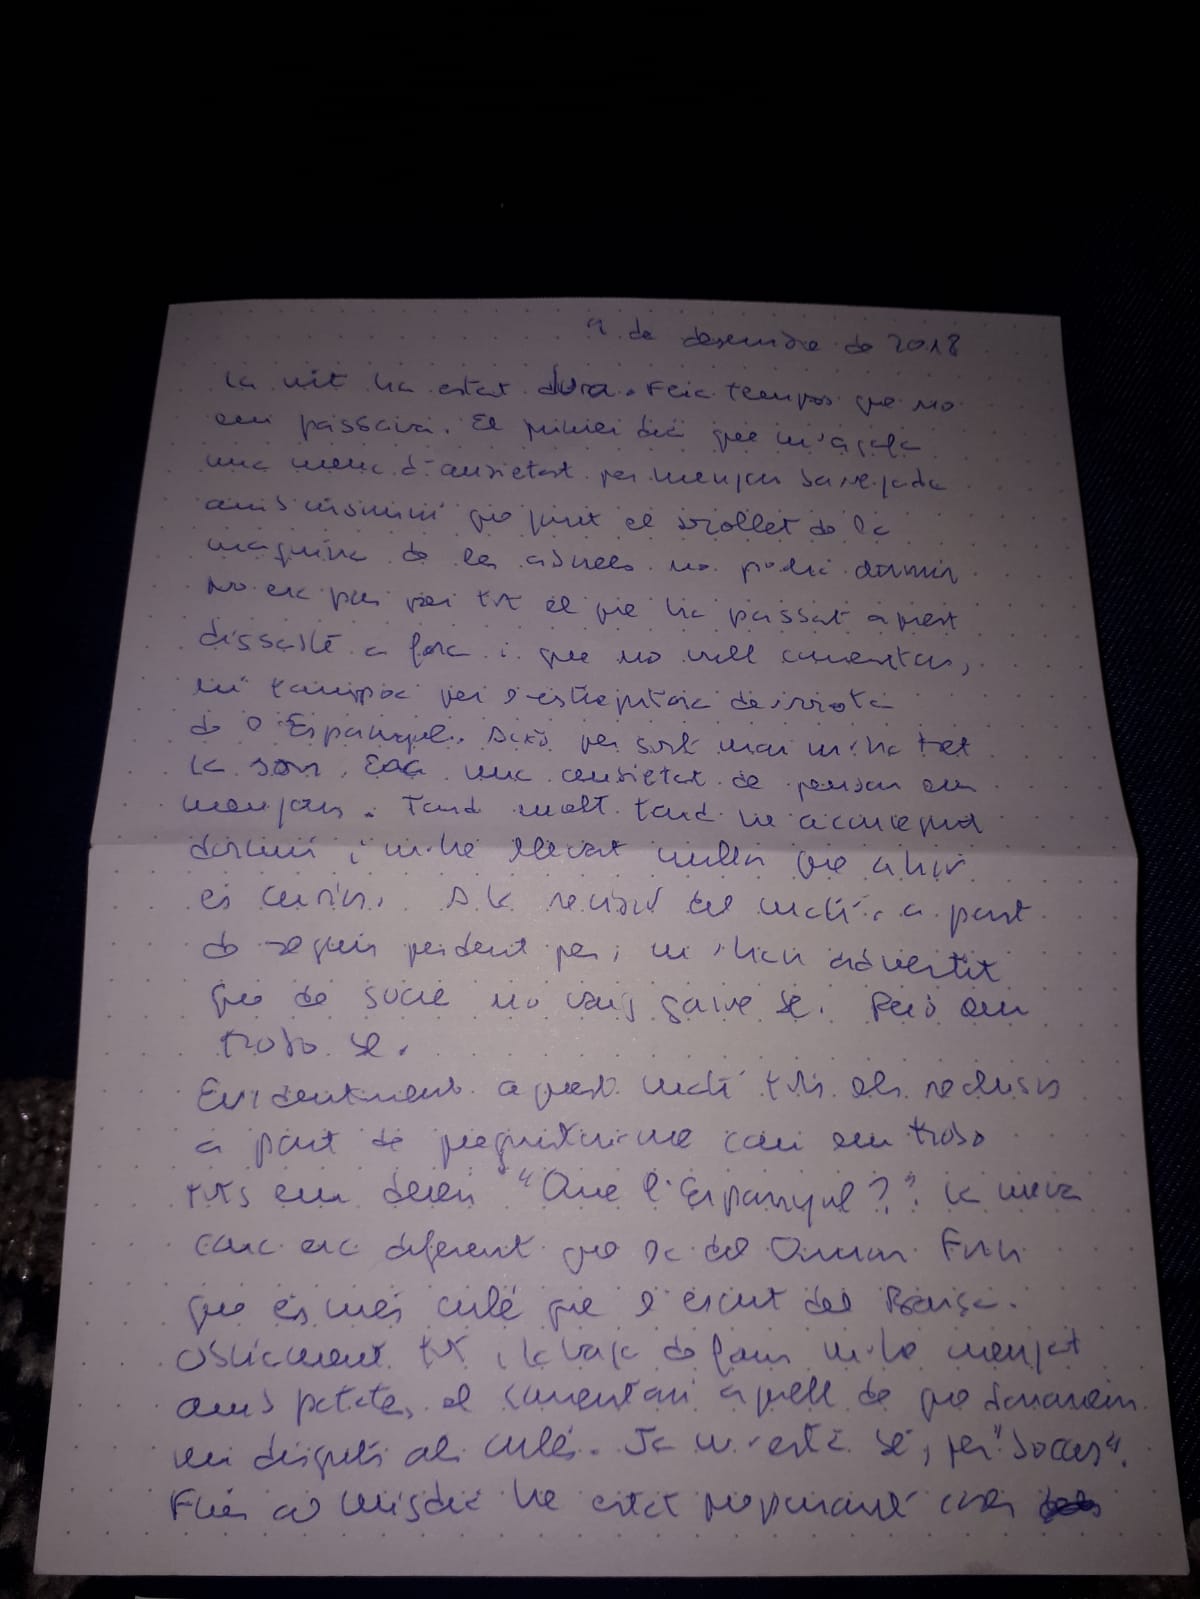 9 de desembre de 2018
La nit ha estat dura. Feia temps que no
em passava. El primer dia que m'agafa
una mena d'ansietat per menjar barrejada
amb insomni que junt el sorollet de la
maquina de les no podia dormir
No era pas per tot el que ha passat aquest
dissabte a fora i que no vull comentar,
ni tampoc per l'estrepitosa derrota
de l'Espanyol. Això per sort mai m'ha tret
la son. Era una ansietat de pensar en
menjar. Tard molt tard he aconseguit
dormir i m'he llevat millor que ahir
és curiós. A la revisió del matí, a part
de seguir perdent pes, m'han advertit
que de sucre no vaig gaire bé. Però em
trobo bé.
Evidentment aquest matí tots els reclusos
a part de preguntar-me com em trobo
tots em deien "Que l'Espanyol?". La meva
cara era diferent que la del Quim Forn
que és més culé que l'escut del Barça.
Obviament tot i la vaga de fam m'he menjat
amb patates el comentari aquell de que donariem
un disgust als culés. Ja m'està bé, per "bocas".
Fins al migdia he estat preparant coses